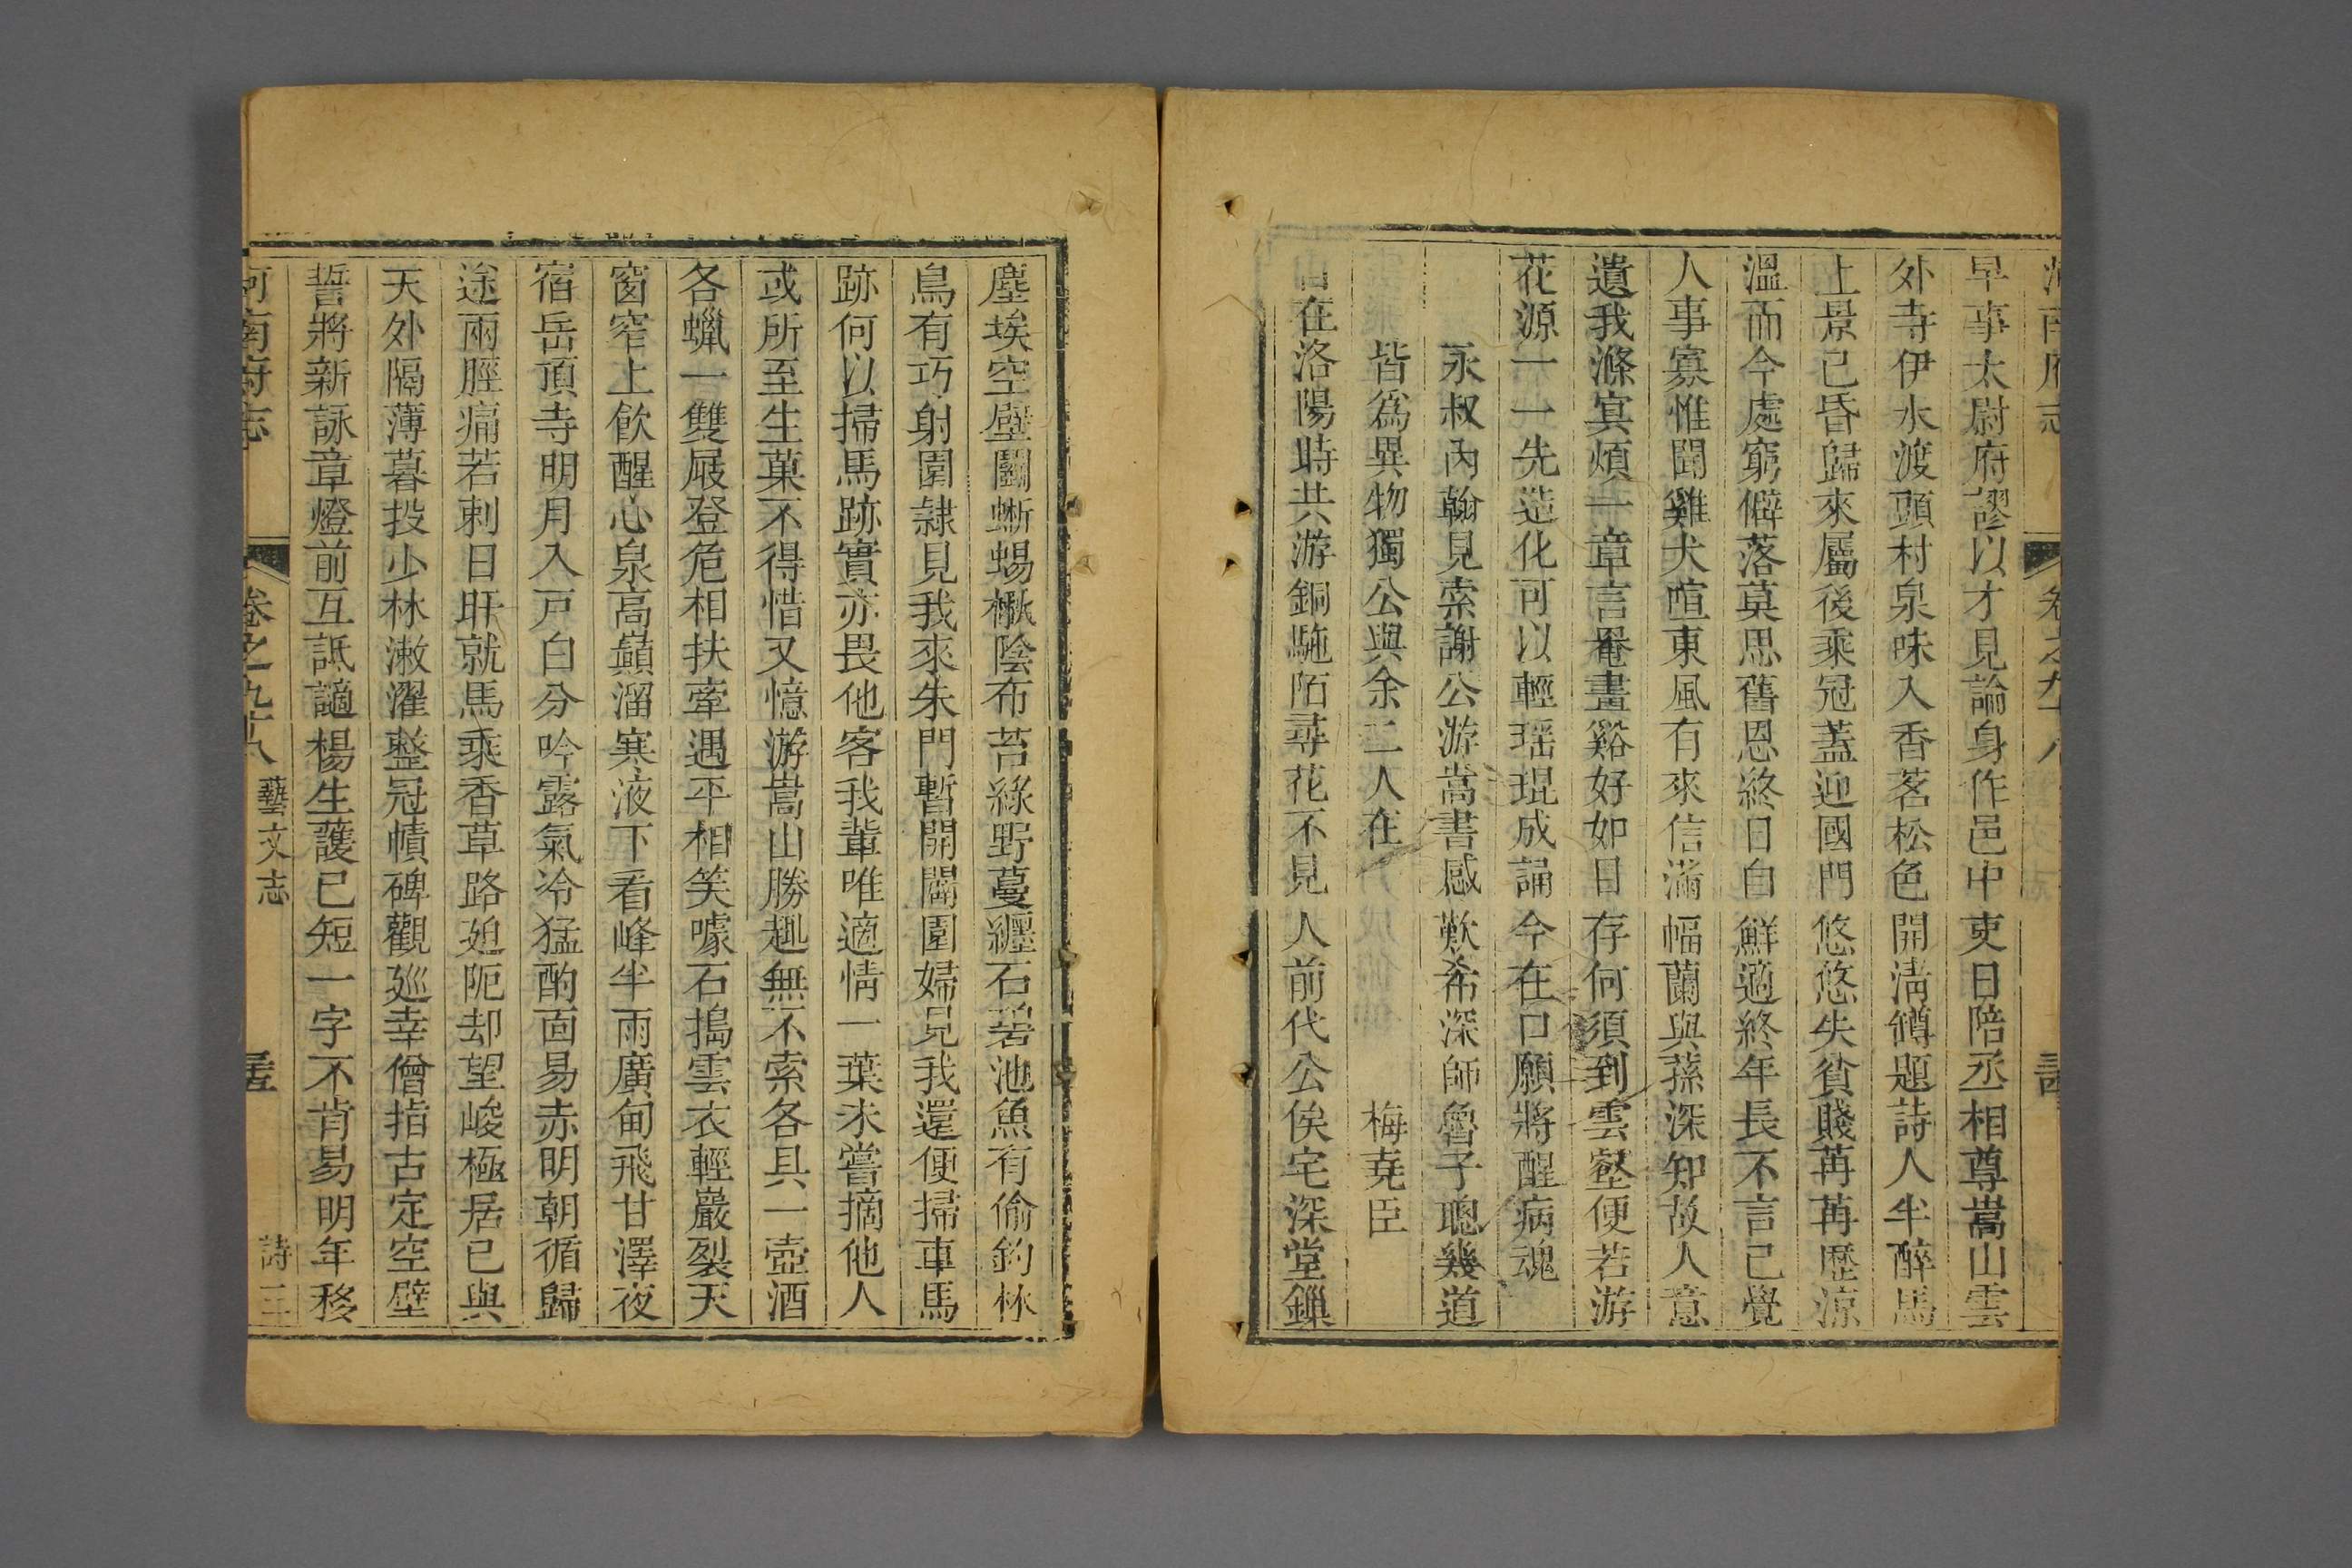 早事太尉府謬以才見論身作邑中吏日陪丞相尊嵩山雲
外寺伊水渡頭村泉味入香茗松色開淸罇題詩人半醉馬
上景已昏歸來屬後乘冠蓋迎國門悠悠失貧賤苒苒歷涼
溫而今處窮僻落莫思舊恩終日自鮮適終年長不言己覺
人事寡惟聞雞犬喧東風有來信滿幅蘭與蓀深知故人意
遺我滌寞煩一章言罨畫谿好如目存何須到雲壑便若游
花源一一先造化可以輕瑶琨成誦今在口願將醒病魂
永叔內翰見索謝公游嵩書感歎希深師魯子聰幾道
皆爲異物獨公與余二人在　梅堯臣
昔在洛陽時共游銅駞陌尋花不見人前代公侯宅深堂鏁
塵埃空壁鬭蜥蜴楸陰布苔綠野蔓纒石碧池魚有偷釣林
鳥有巧射園隷見我來朱門暫開闢園婦見我還便掃車馬
跡何以掃馬跡實亦畏他客我輩唯適情一葉未嘗摘他人
或所至生菓不得惜又憶游嵩山勝趣無不索各具一壺酒
各蠟一雙屐登危相扶牽遇平相笑噱石搗雲衣輕巖裂天
窗窄上飮醒心泉高巓溜寒液下看峰半雨廣甸飛甘澤夜
宿岳頂寺明月入戸白分吟露氣冷猛酌面易赤明朝循歸
途兩脛痛若刺日旰就馬乘香草路廹阨却望峻極居已與
天外隔薄暮投少林漱濯整冠幘碑觀廵幸僧指古定空壁
誓將新詠章燈前互詆讁楊生護已短一字不肯易明年移
河南府志　卷之九十八　藝文志　詩三